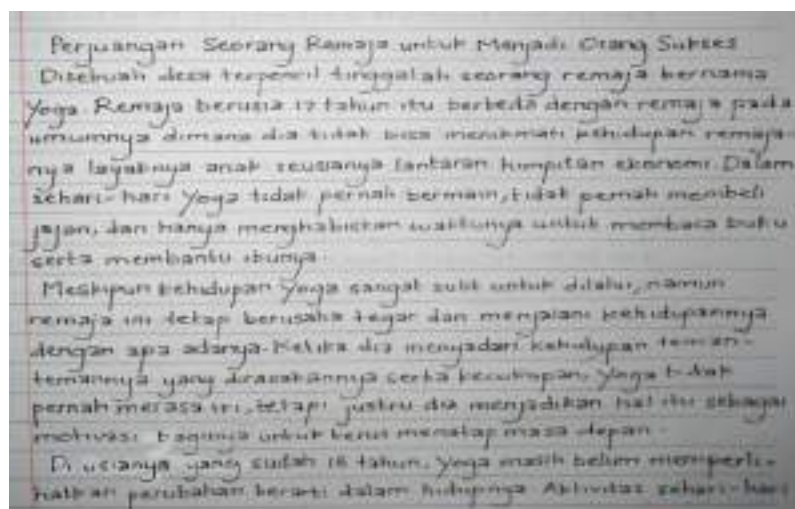 Perjuangan Seorang Remaja untuk Menjadi Orang Sukses
Disebuah desa terpencil tinggalah seorang remaja bernama
Yoga. Remaja berusia 17 tahun itu berbeda dengan remaja pada
umumnya dimana dia tidak bisa menikmati kehidupan remaja-
nya layaknya anak seusianya lantaran himpitan ekonomi. Dalam
sehari-hari Yoga tidak pernah bermain, tidak pernah membeli
jajan, dan hanya menghabiskan waktunya untuk membaca buku
serta membantu ibunya.
Meskipun kehidupan Yoga sangat sulit untuk dilalui, namun
remaja ini tetap berusaha tegar dan menjalani kehidupannya
dengan apa adanya. Ketika dia menyadari kehidupan teman-
temannya yang dirasakannya serba kecukupan, Yoga tidak
pernah merasa iri, tetapi justru dia menjadikan hal itu sebagai
motivasi baginya untuk berani menatap masa depan.
Di usianya yang sudah 18 tahun, Yoga masih belum memperli-
hatkan perubahan berarti dalam hidupnya. Aktivitas sehari-hari